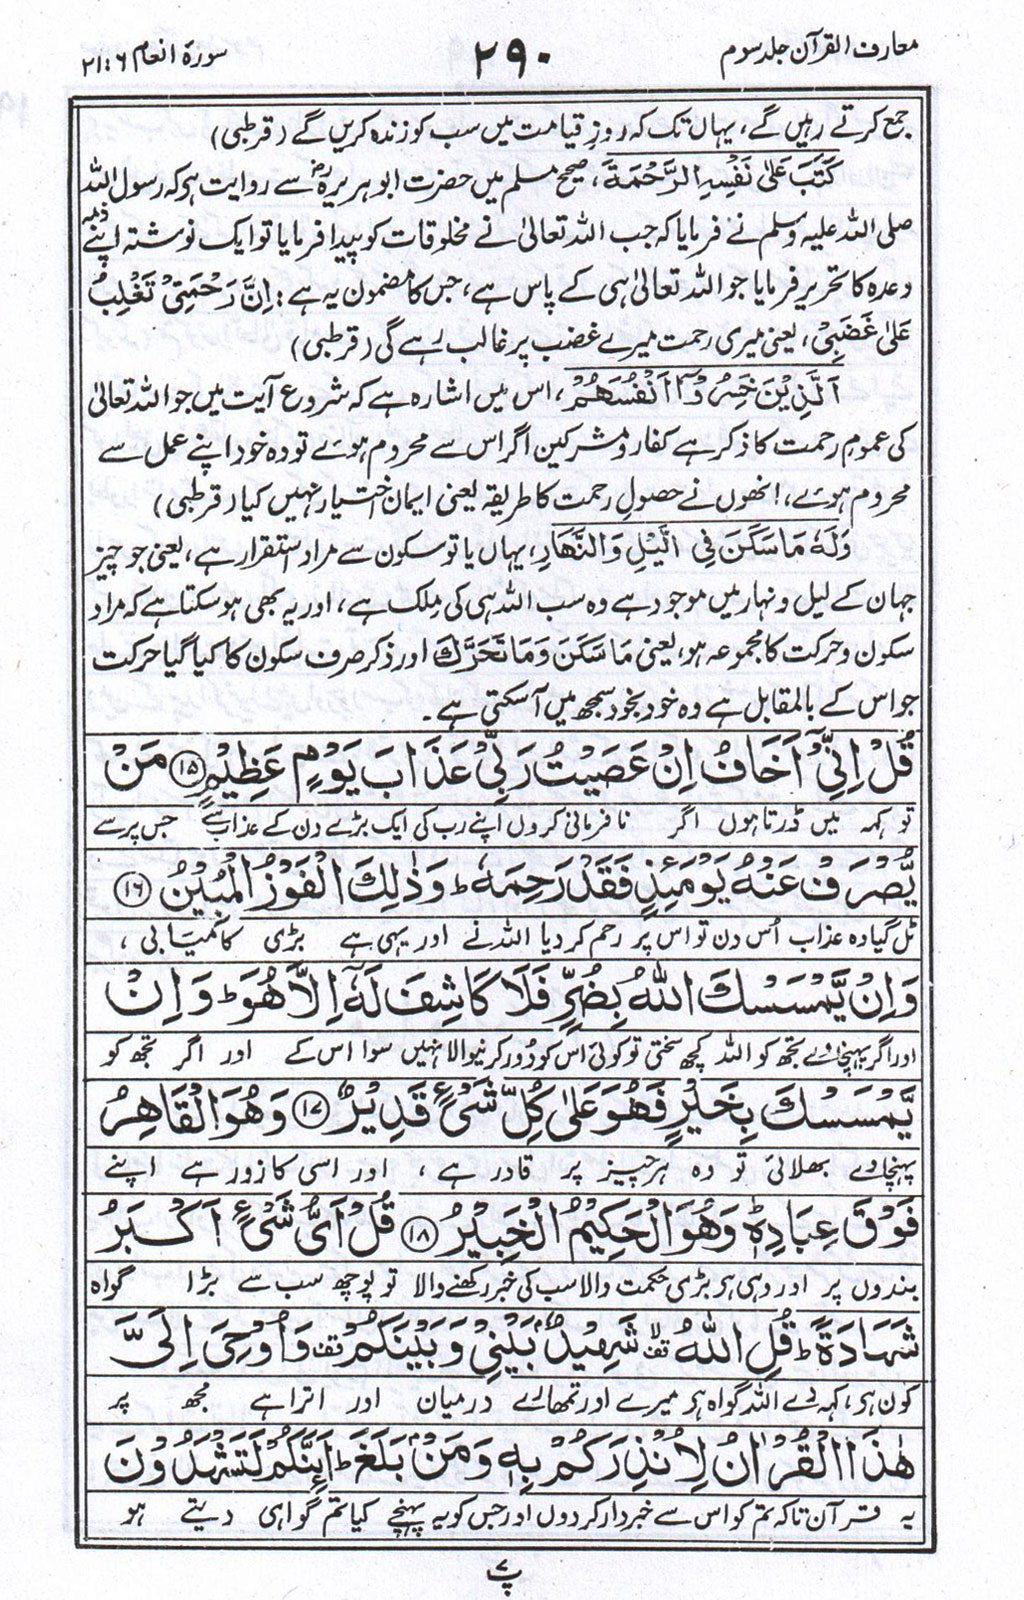 معارف القرآن جلد سوم
۲۹۰
سورۃ انعام ۶ : ۲۱
جمع کرتے رہیں گے، یہاں تک کہ روزِ قیامت میں سب کو زندہ کریں گے (قرطبی)
كَتَبَ عَلٰى نَفْسِهِ الرَّحْمَةَ، صحیح مسلم میں حضرت ابوہریرہؓ سے روایت ہے کہ رسول اللہ
صلی اللہ علیہ وسلم نے فرمایا کہ جب اللہ تعالیٰ نے مخلوقات کو پیدا فرمایا تو ایک نوشتہ اپنے ذمہ
وعدہ کا تحریر فرمایا جو اللہ تعالیٰ ہی کے پاس ہے، جس کا مضمون یہ ہے: اِنَّ رَحْمَتِیْ تَغْلِبُ
عَلٰی غَضَبِیْ، یعنی میری رحمت میرے غضب پر غالب رہے گی (قرطبی)
اَلَّذِیْنَ خَسِرُوْٓا اَنْفُسَهُمْ، اس میں اشارہ ہے کہ شروع آیت میں جو اللہ تعالیٰ
کی عمومِ رحمت کا ذکر ہے کفار و مشرکین اگر اس سے محروم ہوئے تو وہ خود اپنے عمل سے
محروم ہوئے، انھوں نے حصولِ رحمت کا طریقہ یعنی ایمان اختیار نہیں کیا (قرطبی)
وَلَهٗ مَا سَكَنَ فِی الَّیْلِ وَالنَّهَارِ، یہاں یا تو سکون سے مراد استقرار ہے، یعنی جو چیز
جہان کے لیل و نہار میں موجود ہے وہ سب اللہ ہی کی مِلک ہے، اور یہ بھی ہو سکتا ہے کہ مراد
سکون و حرکت کا مجموعہ ہو، یعنی مَا سَكَنَ وَمَا تَحَرَّكَ اور ذکر صرف سکون کا کیا گیا حرکت
جو اس کے بالمقابل ہے وہ خود بخود سمجھ میں آسکتی ہے۔
قُلْ اِنِّیْٓ اَخَافُ اِنْ عَصَیْتُ رَبِّیْ عَذَابَ یَوْمٍ عَظِیْمٍ ﴿۱۵﴾ مَنْ
تو کہہ میں ڈرتا ہوں اگر نافرمانی کروں اپنے رب کی ایک بڑے دن کے عذاب سے جس پر سے
یُّصْرَفْ عَنْهُ یَوْمَئِذٍ فَقَدْ رَحِمَهٗ ؕ وَذٰلِكَ الْفَوْزُ الْمُبِیْنُ ﴿۱۶﴾
ٹل گیا وہ عذاب اُس دن تو اس پر رحم کر دیا اللہ نے اور یہی ہے بڑی کامیابی،
وَاِنْ یَّمْسَسْكَ اللّٰهُ بِضُرٍّ فَلَا كَاشِفَ لَهٗٓ اِلَّا هُوَ ؕ وَاِنْ
اور اگر پہنچاوے تجھ کو اللہ کچھ سختی تو کوئی اس کو دور کرنیوالا نہیں سوا اس کے اور اگر تجھ کو
یَّمْسَسْكَ بِخَیْرٍ فَهُوَ عَلٰى كُلِّ شَیْءٍ قَدِیْرٌ ﴿۱۷﴾ وَهُوَ الْقَاهِرُ
پہنچاوے بھلائی تو وہ ہر چیز پر قادر ہے، اور اسی کا زور ہے اپنے
فَوْقَ عِبَادِهٖ ؕ وَهُوَ الْحَكِیْمُ الْخَبِیْرُ ﴿۱۸﴾ قُلْ اَیُّ شَیْءٍ اَكْبَرُ
بندوں پر اور وہی ہے بڑی حکمت والا سب کی خبر رکھنے والا تو پوچھ سب سے بڑا گواہ
شَهَادَةً ؕ قُلِ اللّٰهُ ۙ شَهِیْدٌۢ بَیْنِیْ وَبَیْنَكُمْ وَاُوْحِیَ اِلَیَّ
کون ہے، کہہ دے اللہ گواہ ہے میرے اور تمھارے درمیان اور اترا ہے مجھ پر
هٰذَا الْقُرْاٰنُ لِاُنْذِرَكُمْ بِهٖ وَمَنْۢ بَلَغَ ؕ اَئِنَّكُمْ لَتَشْهَدُوْنَ
یہ قرآن تاکہ تم کو اس سے خبردار کردوں اور جس کو یہ پہنچے کیا تم گواہی دیتے ہو
پ۷